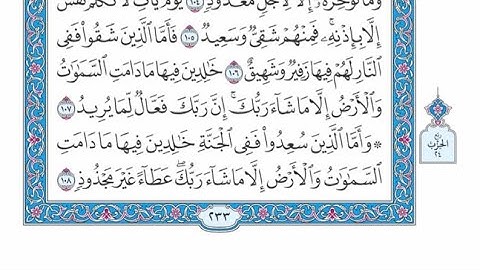 وَمَا نُؤَخِّرُهُۥٓ إِلَّا لِأَجَلٖ مَّعۡدُودٖ ١٠٤ يَوۡمَ يَأۡتِ لَا تَكَلَّمُ نَفۡسٌ
إِلَّا بِإِذۡنِهِۦۚ فَمِنۡهُمۡ شَقِيّٞ وَسَعِيدٞ ١٠٥ فَأَمَّا ٱلَّذِينَ شَقُواْ فَفِي
ٱلنَّارِ لَهُمۡ فِيهَا زَفِيرٞ وَشَهِيقٌ ١٠٦ خَٰلِدِينَ فِيهَا مَا دَامَتِ ٱلسَّمَٰوَٰتُ
وَٱلۡأَرۡضُ إِلَّا مَا شَآءَ رَبُّكَۚ إِنَّ رَبَّكَ فَعَّالٞ لِّمَا يُرِيدُ ١٠٧
۞ وَأَمَّا ٱلَّذِينَ سُعِدُواْ فَفِي ٱلۡجَنَّةِ خَٰلِدِينَ فِيهَا مَا دَامَتِ
ٱلسَّمَٰوَٰتُ وَٱلۡأَرۡضُ إِلَّا مَا شَآءَ رَبُّكَۖ عَطَآءً غَيۡرَ مَجۡذُوذٖ ١٠٨
٢٣٣
ربع
الحزب
٢٤